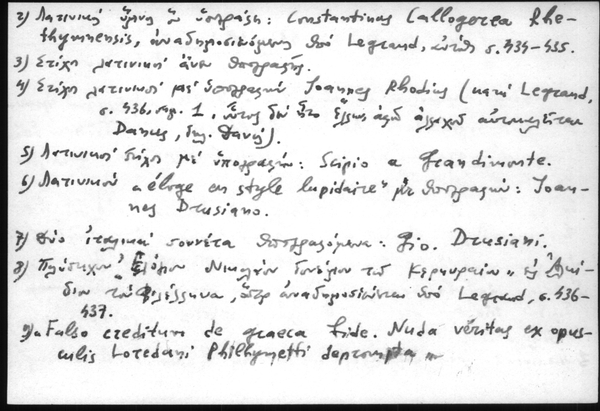 2) Λατινικὸς ὕμνος μὲ ὑπογραφὴ: Constantinos Callogerea Rhe-
thymnensis, ἀναδημοσιευόμενος ὑπὸ Legrand, αὐτόθι σ. 434-435.
3) Στίχοι λατινικοὶ ἄνευ ὑπογραφῆς.
4) Στίχοι λατινικοὶ μὲ ὑπογραφὴν Joannes Rhodius (κατὰ Legrand,
σ. 436, σημ. 1, οὗτος δὲν ἦτο Ἕλλην ἀλλὰ ἀλλαχοῦ αὐτοκαλεῖται
Danus, δηλ. Δανός).
5) Λατινικοὶ στίχοι μὲ ὑπογραφὴν: Scipio a Grandimonte.
6) Λατινικὸν "éloge en style lapidaire" μὲ ὑπογραφὴν: Joan-
nes Drusiano.
7) Δύο ἰταλικὰ σουνέτα ὑπογραφόμενα: Gio. Drusiani.
8) Νικολάου τοῦ Κερκυραίου
τὸν Φιλέλληνα, ἀναδημοσιεύεται ὑπὸ Legrand, σ. 436-
437.
9) "Falso creditum de graeca fide. Nuda veritas ex opus-
culis Loredani Philhymetti deprompta"